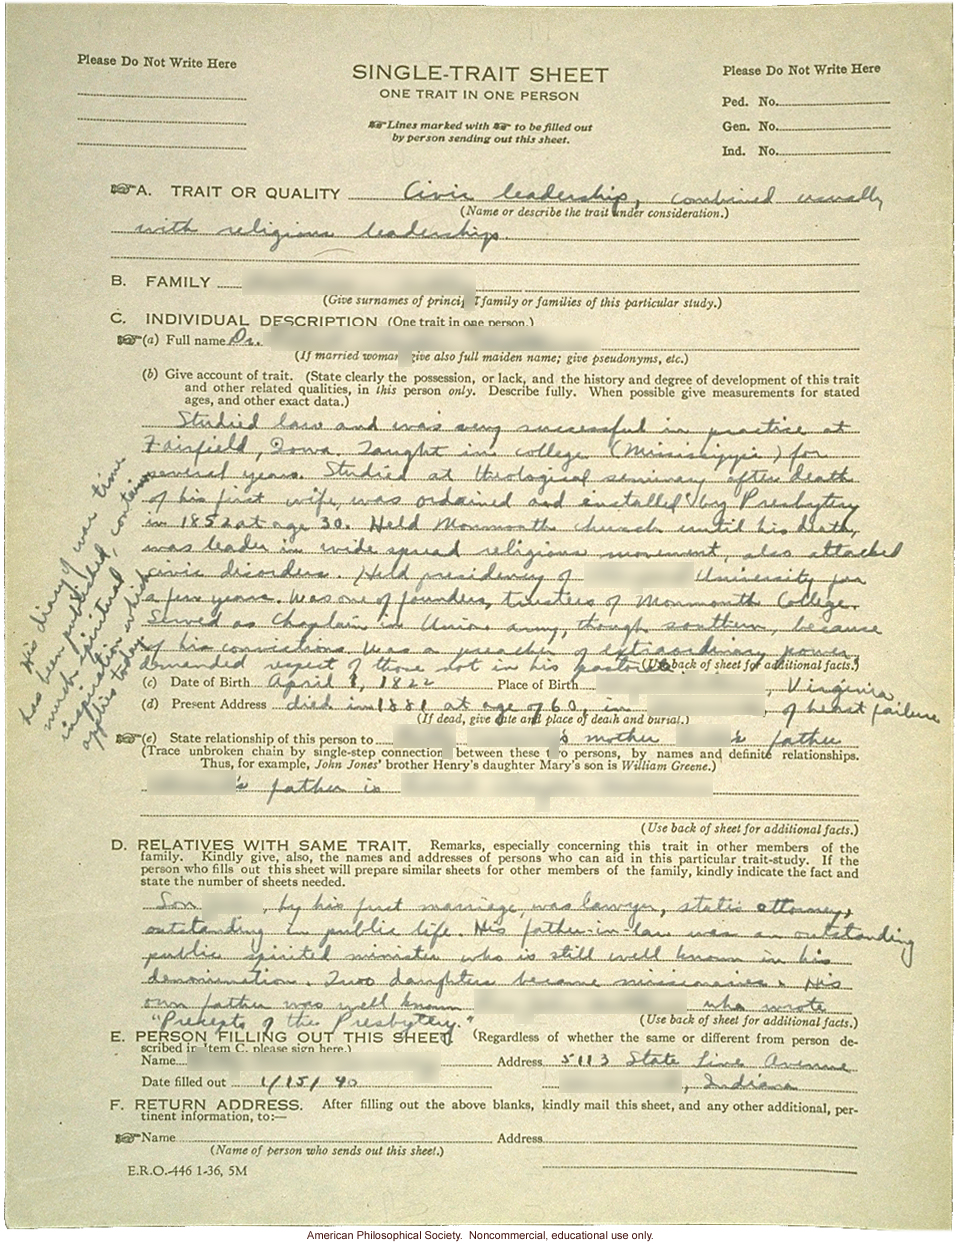 Please Do Not Write Here
SINGLE-TRAIT SHEET
ONE TRAIT IN ONE PERSON
Lines marked with to be filled out
by person sending out this sheet.
Please Do Not Write Here
Ped. No.
Gen. No.
Ind. No.
A. TRAIT OR QUALITY Civic leadership, combined usually
(Name or describe the trait under consideration.)
with religious leadership.
B. FAMILY
(Give surnames of princip family or families of this particular study.)
C. INDIVIDUAL DESCRIPTION (One trait in one person.)
(a) Full name Dr.
(If married woman give also full maiden name; give pseudonyms, etc.)
(b) Give account of trait. (State clearly the possession, or lack, and the history and degree of development of this trait
and other related qualities, in this person only. Describe fully. When possible give measurements for stated
ages, and other exact data.)
Studied law and was very successful in practice at
Fairfield, Iowa. Taught in college (Mississippi) for
several years. Studied at theological seminary after death
of his first wife, was ordained and installed by Presbytery
in 1852 at age 30. Held Monmouth church until his death,
was leader in wide spread religious movement, also attacked
civic disorders. Held presidency of University for
a few years. Was one of founders, trustees of Monmouth College.
Served as Chaplain in Union army, though southern, because
of his convictions. Was a preacher of extraordinary power,
demanded respect of those not in his pastorate (Use back of sheet for additional facts.)
His diary of war time
has been published, contains
much spiritual
inspiration which
applies today
(c) Date of Birth April 1, 1822 Place of Birth , Virginia
(d) Present Address died in 1881 at age of 60, in of heart failure
(If dead, give date and place of death and burial.)
(e) State relationship of this person to 's mother 's father
(Trace unbroken chain by single-step connection between these two persons, by names and definite relationships.
Thus, for example, John Jones' brother Henry's daughter Mary's son is William Greene.)
's father is
(Use back of sheet for additional facts.)
D. RELATIVES WITH SAME TRAIT. Remarks, especially concerning this trait in other members of the
family. Kindly give, also, the names and addresses of persons who can aid in this particular trait-study. If the
person who fills out this sheet will prepare similar sheets for other members of the family, kindly indicate the fact and
state the number of sheets needed.
Son , by his first marriage, was lawyer, state attorney,
outstanding in public life. His father-in-law was an outstanding
public spirited minister who is still well known in his
denomination. Two daughters became missionaries. His
own father was well known who wrote
"Precepts of the Presbytery."
(Use back of sheet for additional facts.)
E. PERSON FILLING OUT THIS SHEET (Regardless of whether the same or different from person de-
scribed in Item C, please sign here.)
Name Address 5113 State Line Avenue
Date filled out 1/15/40 , Indiana
F. RETURN ADDRESS. After filling out the above blanks, kindly mail this sheet, and any other additional, per-
tinent information, to:—
Name Address
(Name of person who sends out this sheet.)
E.R.O.-446 1-36, 5M
American Philosophical Society. Noncommercial, educational use only.